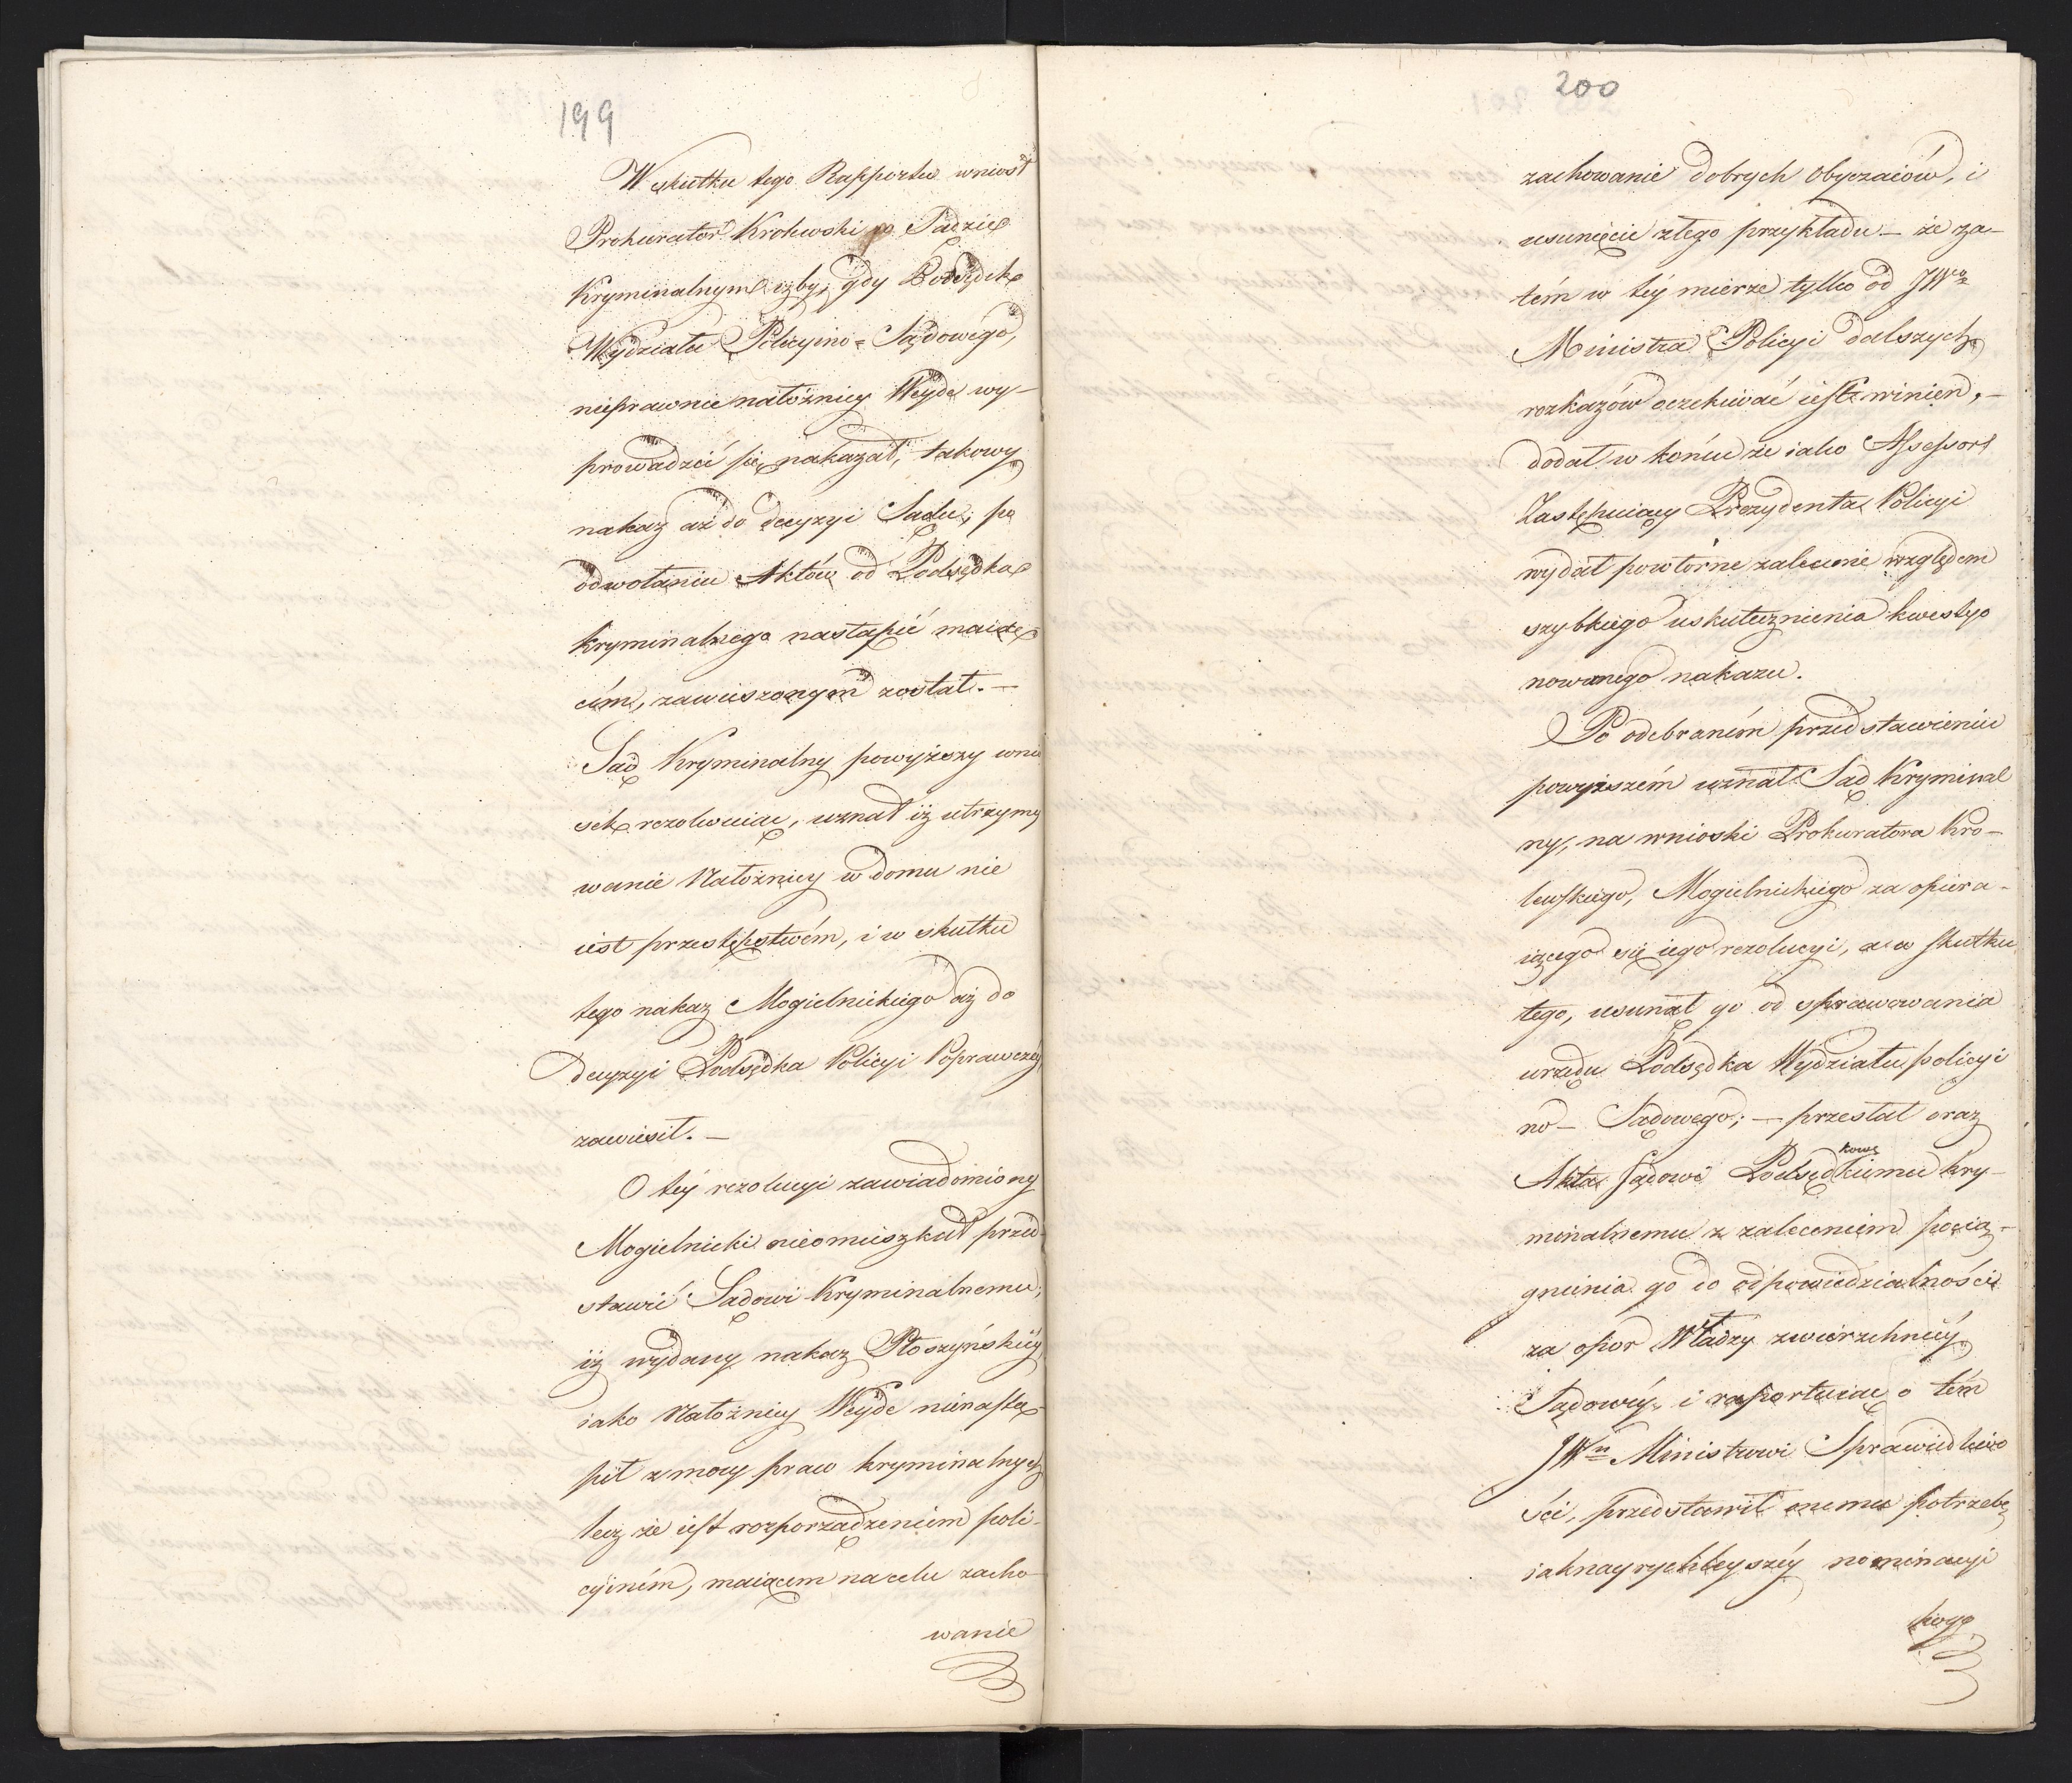 199
W skutku tego Rapportu wniosł
Prokurator Krolewski w Sądzie
Kryminalnym ażby, gdy Podsędek
Wydziału Policyino-Sądowego,
nieprawnie nałożnicy Weyde wy-
prowadzić się nakazał, takowy
nakaz aż do decyzyi Sądu, po
odwołaniu Aktów od Podsędka
kryminalnego nastąpić maią-
cém, zawieszonym został. —
Sąd Kryminalny powyższy wnio
sek rezolwuiąc, uznał iż utrzymy
wanie Nałożnicy w domu nie
iest przestępstwém, i w skutku
tego nakaz Mogielnickiego aż do
decyzyi Podsędka Policyi Poprawczéy
zawiesił. —
O téy rezolucyi zawiadomiony
Mogielnicki nieomieszkał przed-
stawić Sądowi Kryminalnemu,
iż wydany nakaz Płoszyńskiéy
iako Nałożnicy Weyde nienastą-
pił z mocy praw kryminalnych
lecz że iest rozporządzeniem poli-
cyiném, maiącem na celu zacho-
wanie
200
zachowanie dobrych obyczaiów, i
usunięcie złego przykładu — że za-
tém w téy mierze tylko od JWo
Ministra Policyi dalszych
rozkazów oczekiwać iest winien, —
dodał w końcu że iako Assessor
Zastępuiący Prezydenta Policyi
wydał powtórne zalecenie względem
szybkiego uskutecznienia kwestyo
nowanego nakazu.
Po odebraném przedstawieniu
powyższém uznał Sąd Kryminal
ny, na wnioski Prokuratora Kro-
lewskiego, Mogielnickiego za opiera-
iącego się iego rezolucyi, a w skutku
tego, usunął go od sprawowania
urzędu Podsędka Wydziału policyi
no- Sądowego; — przesłał oraz
Akta Sądowi Podsędkowskiemu kry-
minalnemu z zaleceniem pocią-
gnienia go do odpowiedzialności
za opór Władzy zwierzchniéy
Sądowéy i raportuiąc o tém
JWu Ministrowi Sprawiedliwo
ści, przedstawił onemu potrzebę
iaknayrychleyszéy nominacyi